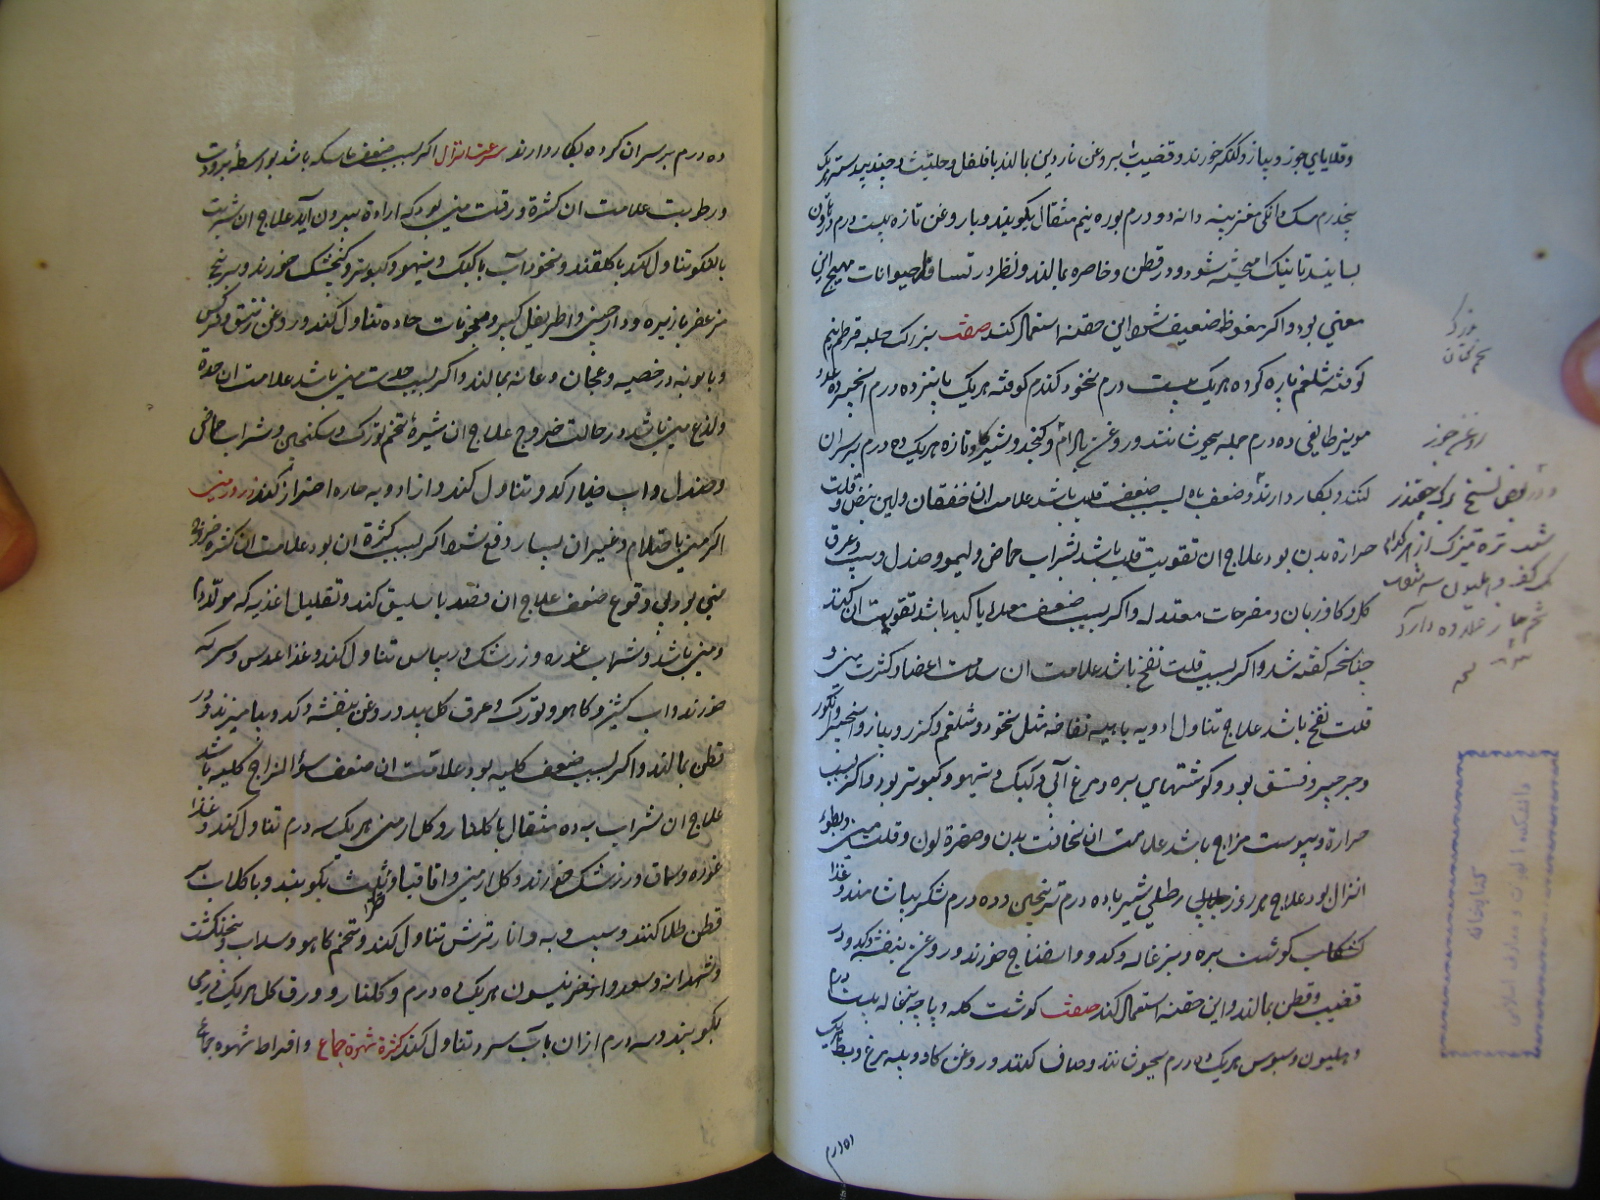 وقلایای جوز و پیاز و کنکر خورند و قضیب را بروغن ناردین بمالند با فلفل و حلتیت و جندبیدستر هریک
پنجدرم مسک دانکی مغز پنبه دانه دو درم بوره نیم مثقال بکوبند و با روغن تازه بیست درم
بسایند تا نیک آمیخته شود و در قطن و خاصره بمالند و نظر در تسافد حیوانات مهیج این
معنی بود و اکر نعوظ ضعیف شود این حقنه استعمال کند صفت بزرک حلبه قرطم نیم
کوفته شلغم پاره کرده هریک بیست درم نخود کندم کوفته هریک پانزده درم انجیر ده عدد
مویز طایفی ده درم جمله بجوشانند و روغن بادام و کنجد و شیر کاو تازه هریک ده درم بر سر ان
کنند و بکار دارند و ضعف باه بسبب ضعف قلب باشد علامت ان خفقان و لین نبض و قلت
حرارة بدن بود علاج ان تقویت قلب باشد بشراب حماض و لیمو و صندل و سیب و عرق
کل و کاوزبان و مفرحات معتدله و اکر بسبب ضعف معده یا کبد باشد تقویت ان کنند
چنانچه کفته شد و اکر بسبب قلت نفخ باشد علامت ان سلامت اعضا و کثرت منی و
قلت نفخ باشد علاج تناول ادویه باهیه نفاخه مثل نخود و شلغم و کزر و پیاز و انجیر و انکور
و جرجیر و فستق بود و کوشتهای بره و مرغ آبی و کبک و تیهو و کبوتر بود و اکر بسبب
حرارة و یبوست مزاج باشد علامت ان نحافت بدن و صفرة لون و قلت منی و بطوء
انزال بود علاج هر روز رطلی شیر با ده درم ترنجبین و ده درم شکر بیاشامند و غذا
کشکاب کوشت بره و بزغاله و کدو و اسفناج خورند و روغن بنفشه و کدو در
قضیب و قطن بمالند و این حقنه استعمال کند صفت کوشت کله و پاچه بزغاله بیست درم
و هلیون و سبوس هریک ده درم بجوشانند و صاف کنند و روغن کاو و پیه مرغ و بط هریک
ده درم بر سر ان کرده بکار دارند سرعت انزال اکر بسبب ضعف ماسکه باشد بواسطه برودت
و رطوبت علامت ان کثرة و رقت منی بود که بی ارادة بیرون آید علاج ان شربت
بالنکو تناول کند با کلقند و نخودآب با کبک و تیهو و کبوتر و کنجشک خورند و برنج
مزعفر با زیره و دارچینی و اطریفل کبیر و معجونات حاده تناول کنند و روغن زنبق و نرکس
و بابونه در خصیه و عجان و عانه بمالند و اکر بسبب حدت منی باشد علامت ان حدة
و لذع منی باشد در حالت خروج علاج ان شیرۀ تخم تورک و سکنجبین و شراب حماض
و صندل و اب خیار کدو تناول کند و از ادویه حاره احتراز کند درور منی
اکر منی باحتلام و غیر ان بسیار دفع شود اکر بسبب کثرة ان بود علامت ان کثرة خروج
منی بود بی وقوع ضعف علاج ان فصد باسلیق کند و تقلیل اغذیه که مولد دم
و منی باشد و شراب غوره و زرشک و ریباس تناول کند و غذا عدس و سرکه
خورند و اب کشنیز و کاهو و تورک و عرق کل بید و روغن بنفشه و کدو بیامیزند و در
قطن بمالند و اکر بسبب ضعف کلیه بود علامت ان ضعف سؤالمزاج کلیه باشد
علاج ان شراب به ده مثقال با کلنار و کل ارمنی هریک سه درم تناول کند و غذا
غوره و سماق و زرشک خورند و کل ارمنی و اقاقیا و بکوبند و با کلاب بر
قطن طلا کنند و سیب و به و انار ترش تناول کند و تخم کاهو و سداب و پنجنکشت
و شهدانه و سعد و هریک ده درم و کلنار و ورق کل هریک درمی
بکوبند و سه درم از ان باب سرد تناول کند کثرة شهوة جماع و افراط شهوه جماع
روغن جوز
کتابخانه
دانشکده الهیات و معارف اسلامی